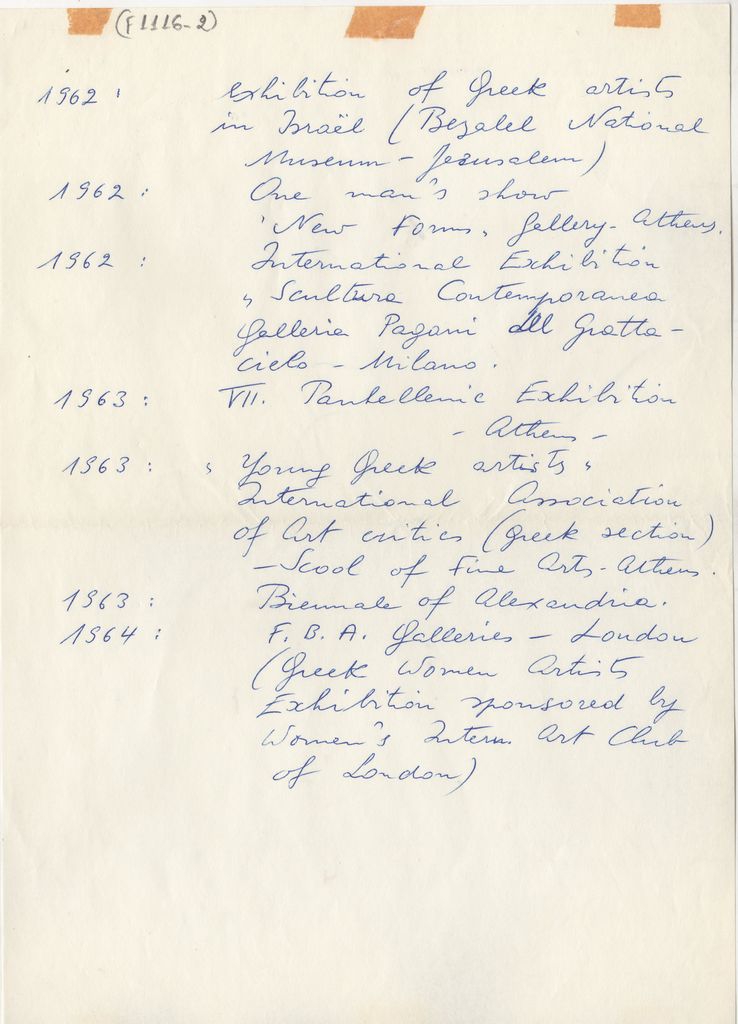 (F1116-2)
1962 : Exhibition of Greek artists
in Israël (Bezalel National
Museum - Jerusalem)
1962 : One man's show
"New Forms" Gallery - Athens.
1962 : International Exhibition
"Scultura Contemporanea
Galleria Pagani del Gratta-
cielo - Milano.
1963 : VII. Panhellenic Exhibition
- Athens -
1963 : "Young Greek artists"
International Association
of Art critics (Greek section)
- Scool of Fine Arts - Athens.
1963 : Biennale of Alexandria.
1964 : F. B. A. Galleries - London
(Greek Women Artists
Exhibition sponsored by
Women's Intern. Art Club
of London)